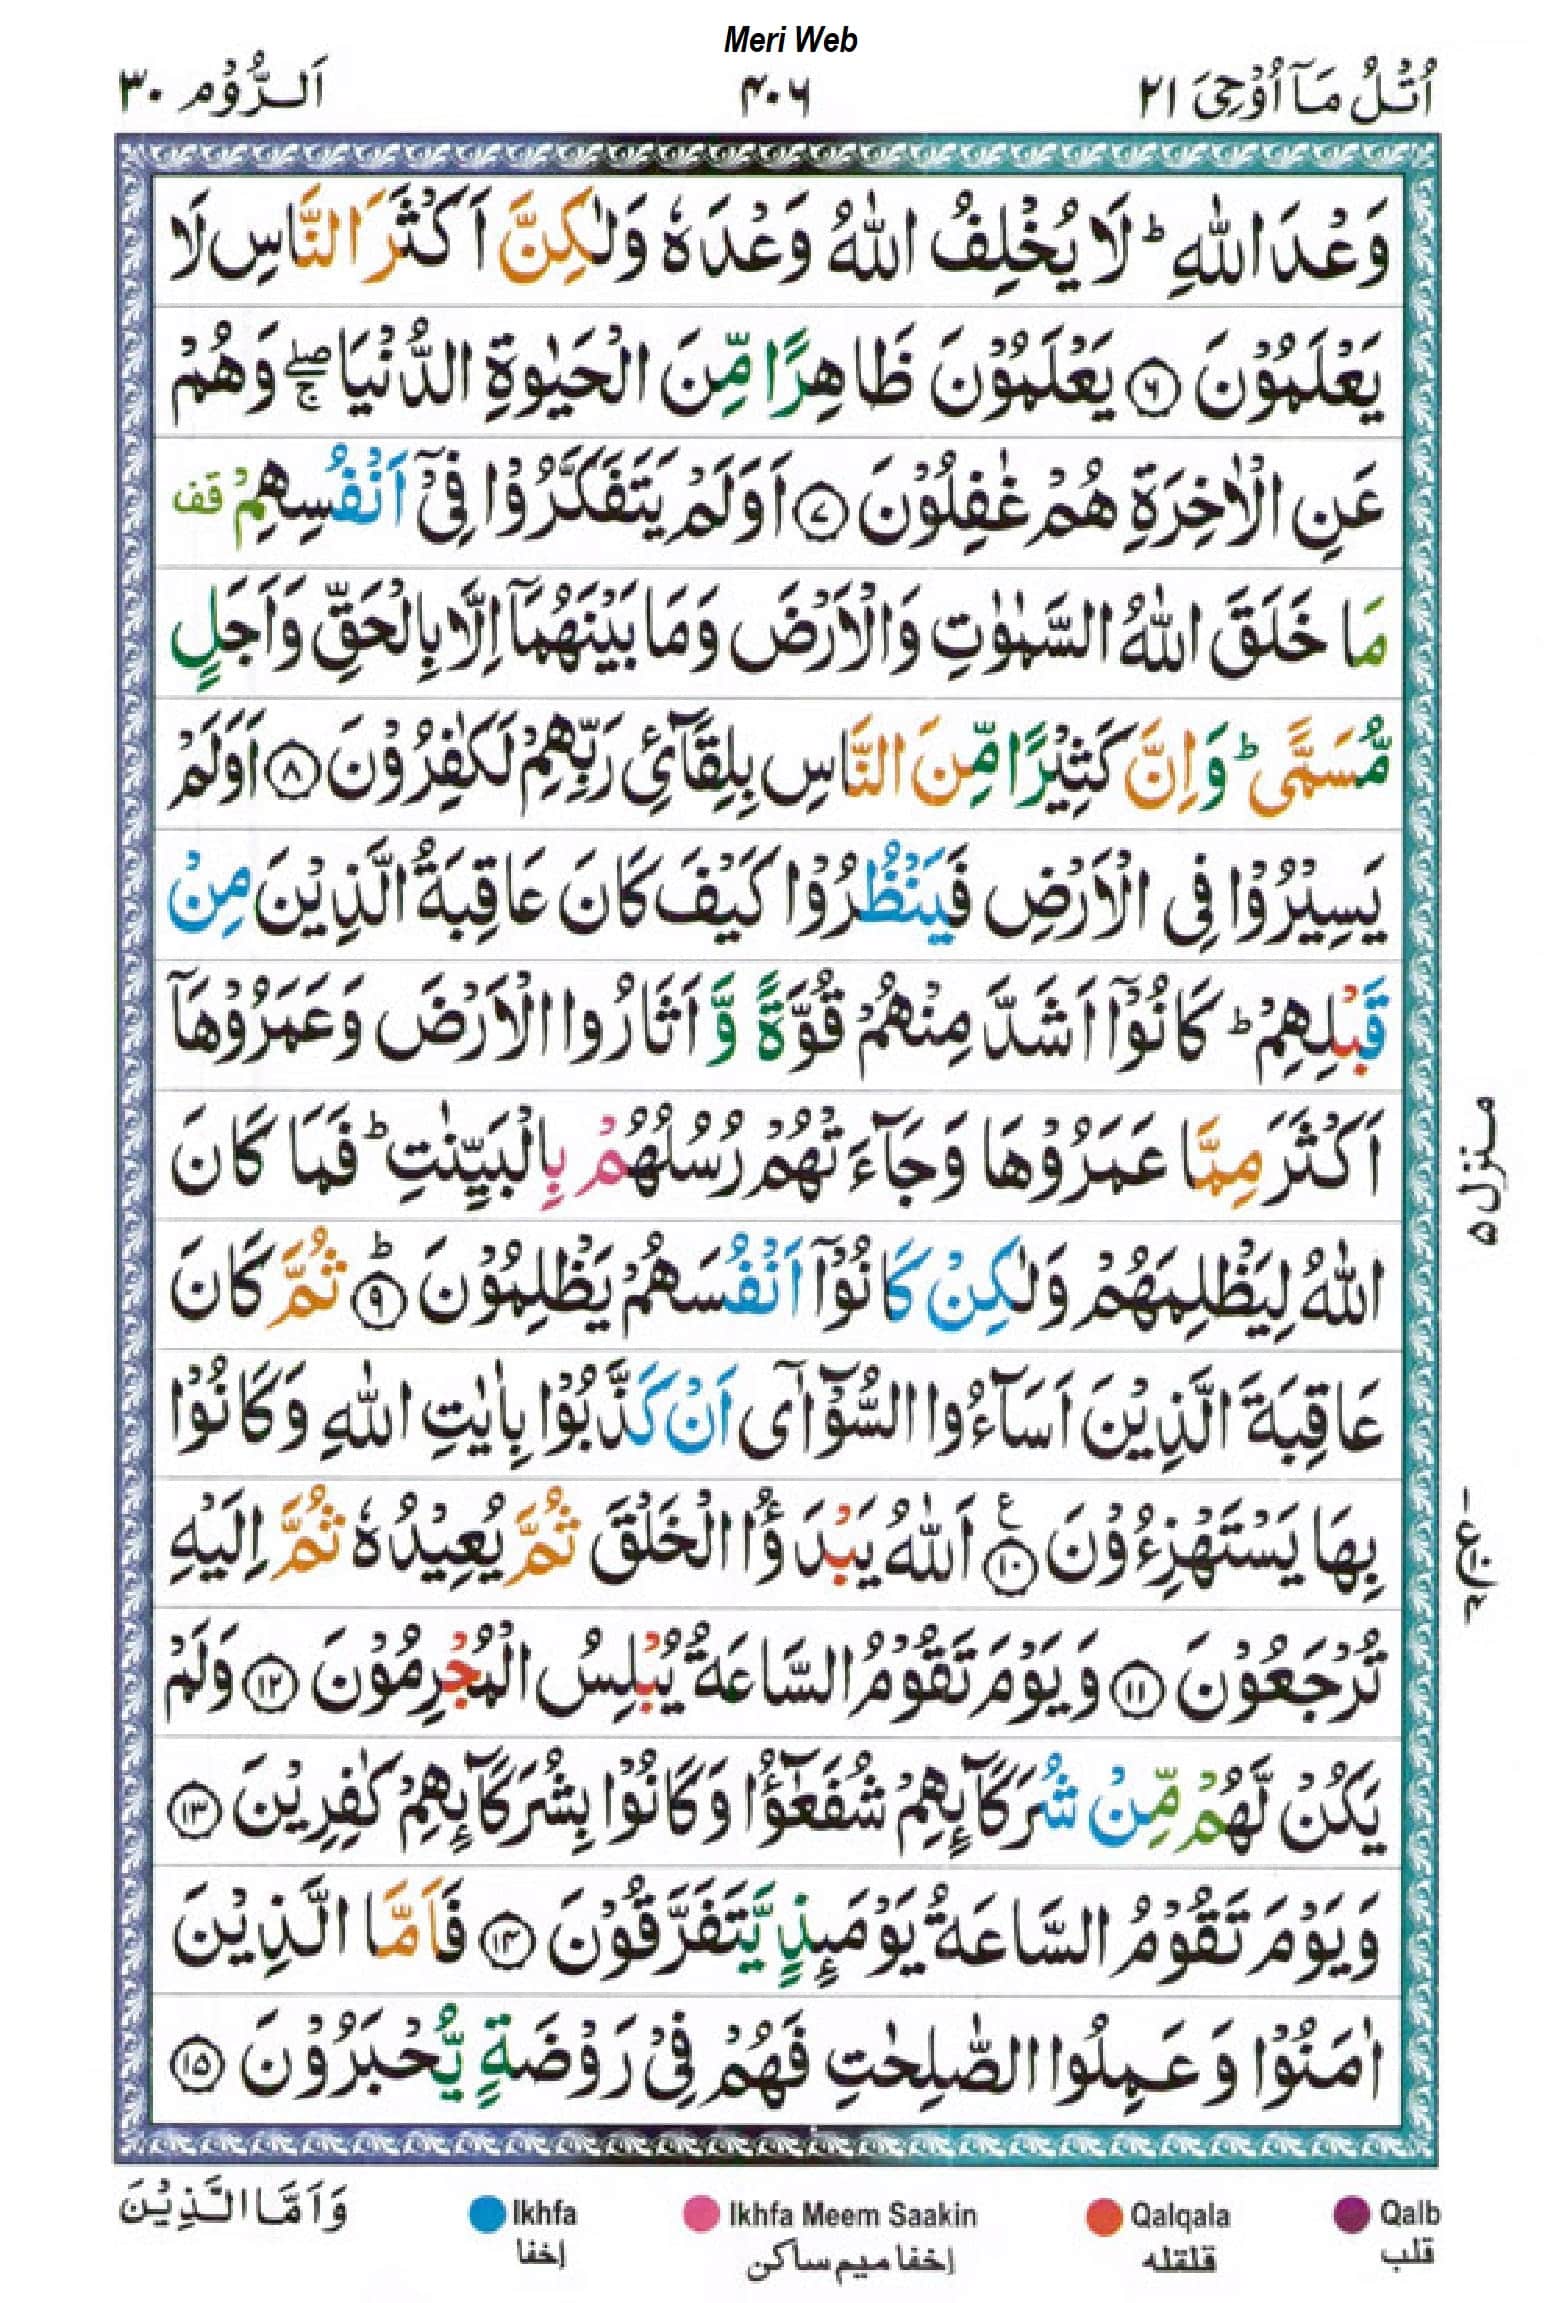 Meri Web
اُتْلُ مَآ اُوْحِیَ ٢١
٤٠٦
اَلرُّوْم ٣٠
وَعْدَ اللّٰهِ ؕ لَا يُخْلِفُ اللّٰهُ وَعْدَهٗ وَلٰكِنَّ اَكْثَرَ النَّاسِ لَا
يَعْلَمُوْنَ ۝٦ يَعْلَمُوْنَ ظَاهِرًا مِّنَ الْحَيٰوةِ الدُّنْيَا ۖۚ وَهُمْ
عَنِ الْاٰخِرَةِ هُمْ غٰفِلُوْنَ ۝٧ اَوَلَمْ يَتَفَكَّرُوْا فِیْۤ اَنْفُسِهِمْ قف
مَا خَلَقَ اللّٰهُ السَّمٰوٰتِ وَالْاَرْضَ وَمَا بَيْنَهُمَاۤ اِلَّا بِالْحَقِّ وَاَجَلٍ
مُّسَمًّی ؕ وَاِنَّ كَثِيْرًا مِّنَ النَّاسِ بِلِقَآئِ رَبِّهِمْ لَكٰفِرُوْنَ ۝٨ اَوَلَمْ
يَسِيْرُوْا فِی الْاَرْضِ فَيَنْظُرُوْا كَيْفَ كَانَ عَاقِبَةُ الَّذِيْنَ مِنْ
قَبْلِهِمْ ؕ كَانُوْۤا اَشَدَّ مِنْهُمْ قُوَّةً وَّ اَثَارُوا الْاَرْضَ وَعَمَرُوْهَاۤ
اَكْثَرَ مِمَّا عَمَرُوْهَا وَجَآءَتْهُمْ رُسُلُهُمْ بِالْبَيِّنٰتِ ؕ فَمَا كَانَ
اللّٰهُ لِيَظْلِمَهُمْ وَلٰكِنْ كَانُوْۤا اَنْفُسَهُمْ يَظْلِمُوْنَ ۝٩ؕ ثُمَّ كَانَ
عَاقِبَةَ الَّذِيْنَ اَسَآءُوا السُّوْٓاٰۤی اَنْ كَذَّبُوْا بِاٰيٰتِ اللّٰهِ وَكَانُوْا
بِهَا يَسْتَهْزِءُوْنَ ۝١٠ ع اَللّٰهُ يَبْدَؤُا الْخَلْقَ ثُمَّ يُعِيْدُهٗ ثُمَّ اِلَيْهِ
تُرْجَعُوْنَ ۝١١ وَيَوْمَ تَقُوْمُ السَّاعَةُ يُبْلِسُ الْمُجْرِمُوْنَ ۝١٢ وَلَمْ
يَكُنْ لَّهُمْ مِّنْ شُرَكَآئِهِمْ شُفَعٰٓؤُا وَكَانُوْا بِشُرَكَآئِهِمْ كٰفِرِيْنَ ۝١٣
وَيَوْمَ تَقُوْمُ السَّاعَةُ يَوْمَئِذٍ يَّتَفَرَّقُوْنَ ۝١٤ فَاَمَّا الَّذِيْنَ
اٰمَنُوْا وَعَمِلُوا الصّٰلِحٰتِ فَهُمْ فِیْ رَوْضَةٍ يُّحْبَرُوْنَ ۝١٥
منزل ۵
ع
وَاَمَّا الَّذِيْنَ
Ikhfa
إخفا
Ikhfa Meem Saakin
إخفا ميم ساكن
Qalqala
قلقله
Qalb
قلب